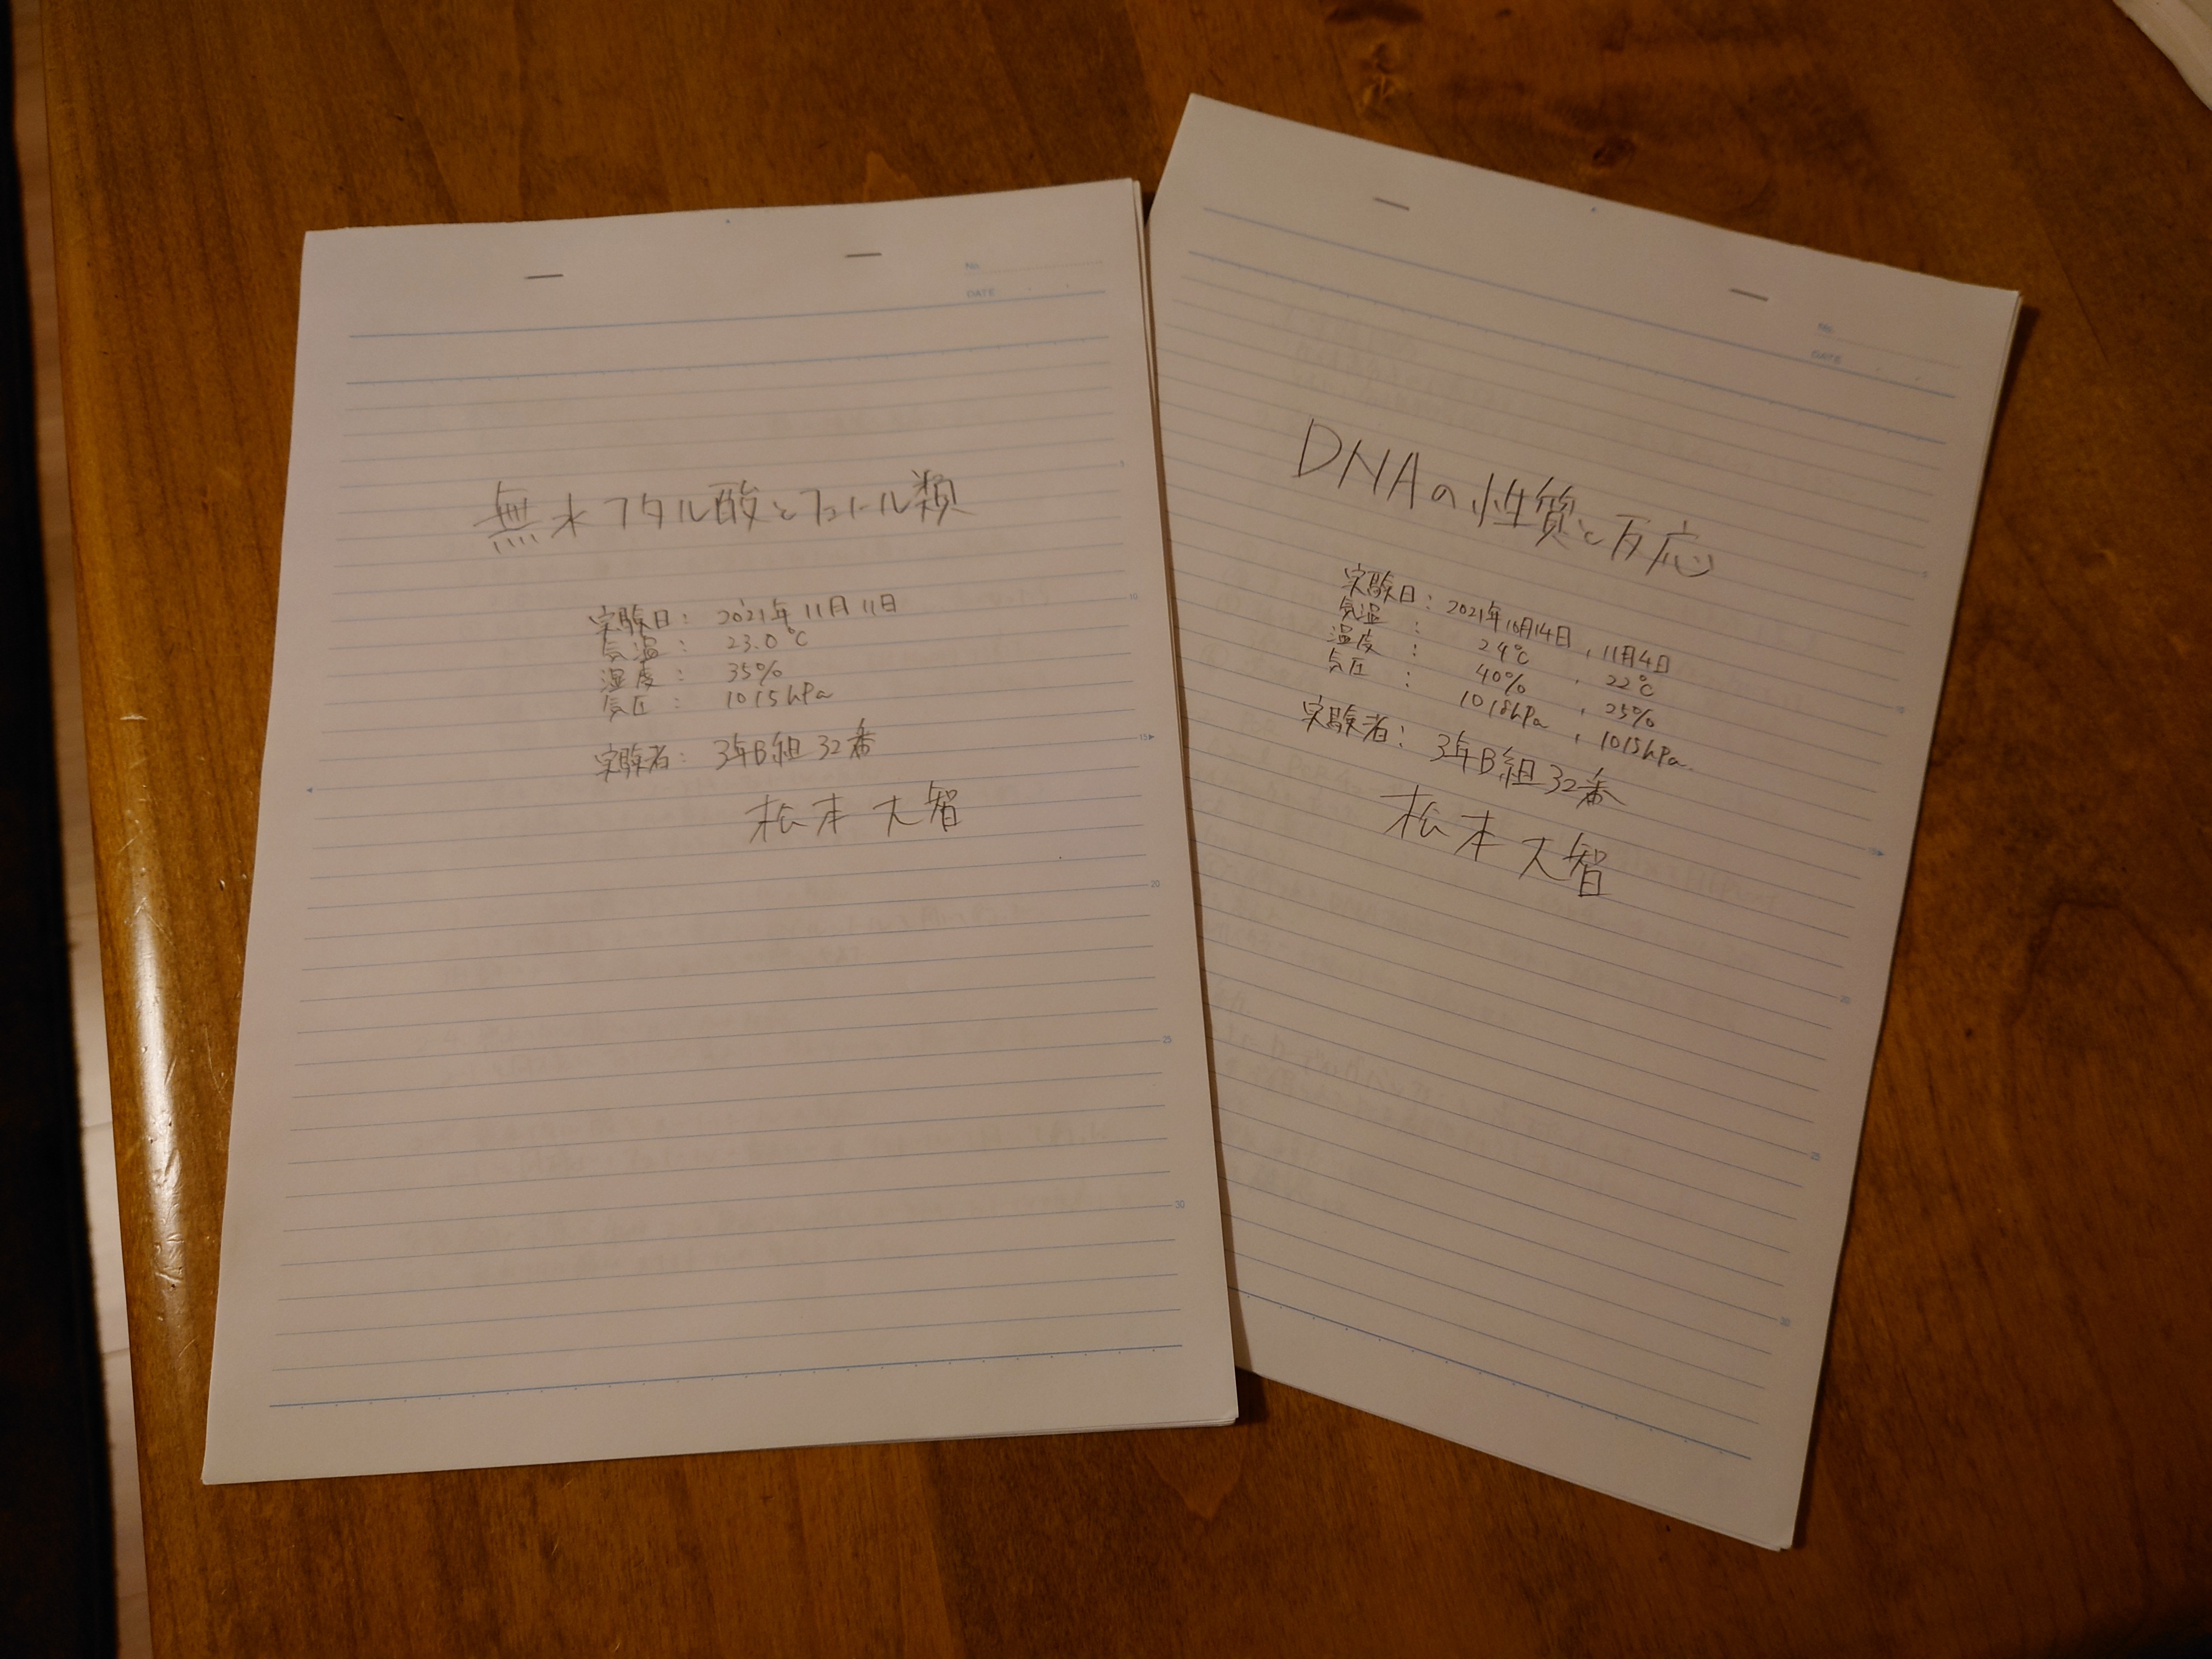 No.
DATE
無水フタル酸とフェノール類
実験日： 2021年 11月 11日
気温： 23.0℃
湿度： 35%
気圧： 1015hPa
実験者： 3年B組 32番
松本 大智
5
10
15
20
25
30
No.
DATE
DNAの性質と反応
実験日：2021年10月14日，11月4日
気温： 24℃，22℃
湿度： 40%，25%
気圧： 1018hPa，1015hPa.
実験者： 3年B組 32番
松本 大智
5
10
15
20
25
30